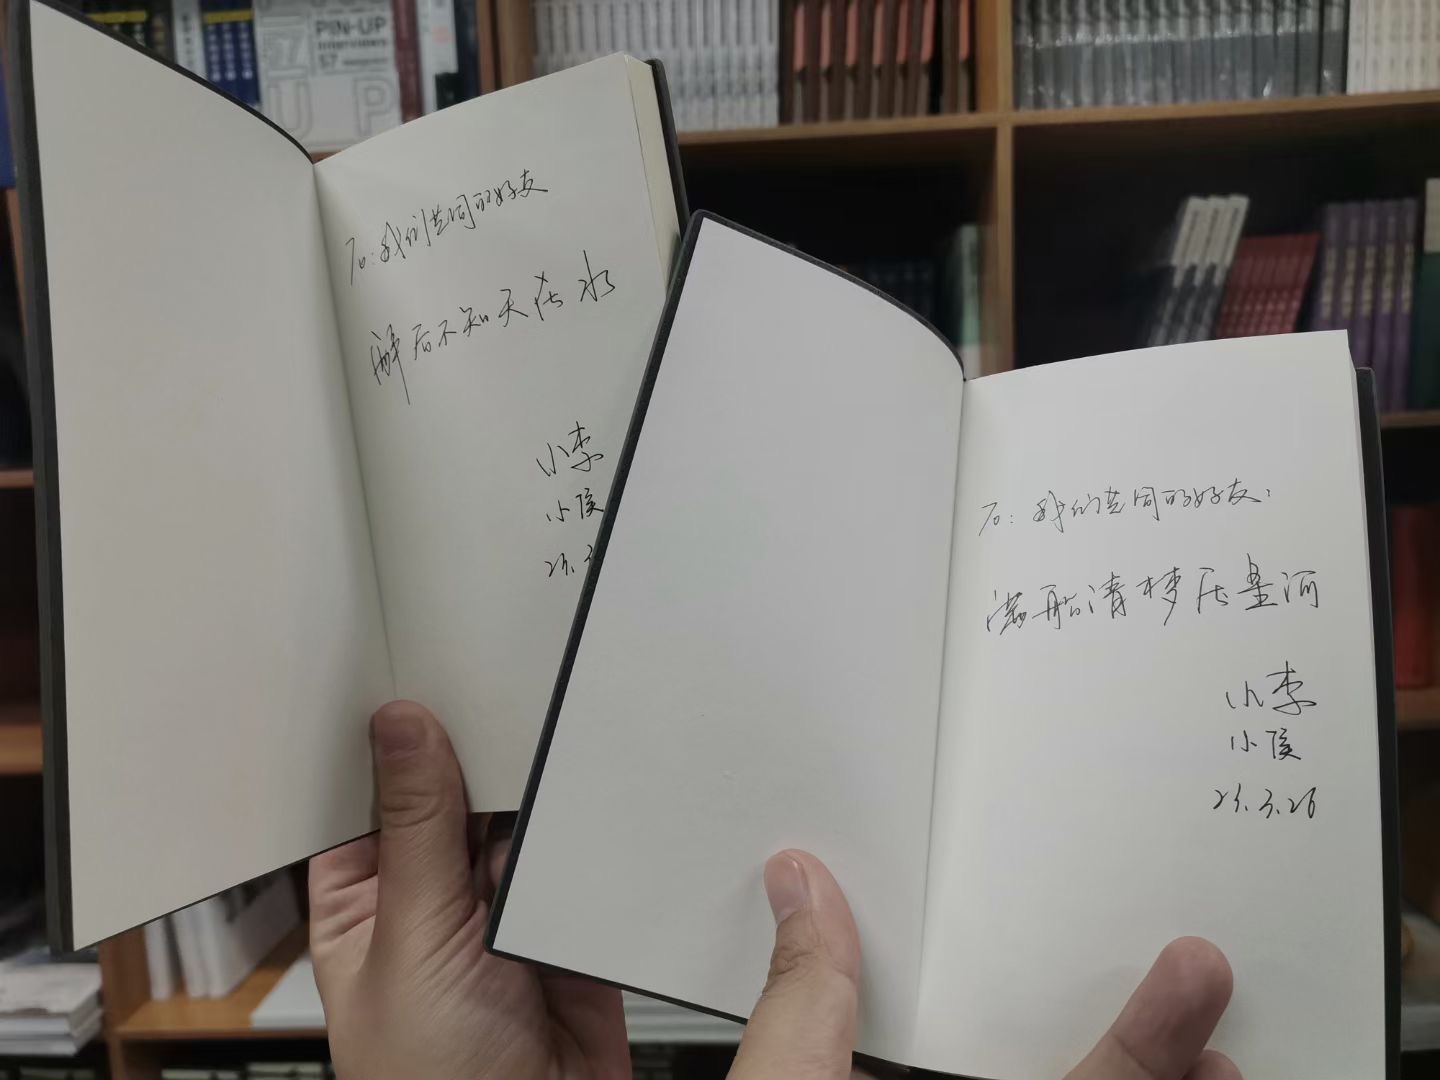 PIN-UP
INTERVIEWS
57
To：我们共同的好友
醉后不知天在水
小李
小侯
To：我们共同的好友：
满船清梦压星河
小李
小侯
25.3.26